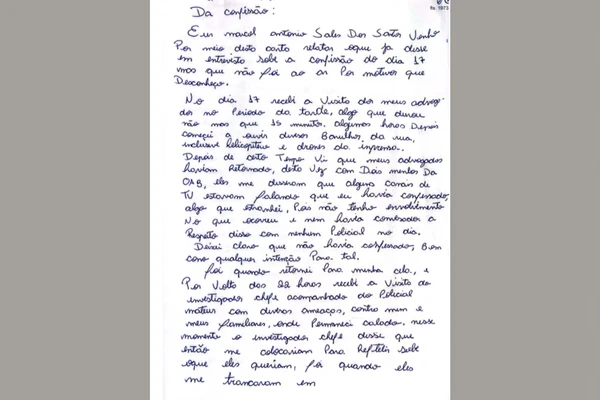 fls. 1973
Da confissão:
Eu marcel antonio Sales Dos Santos Venho
Por meio desta carta relatar oque ja disse
em entrevista sobe a confissão do dia 17
mas que não foi ao ar Por motivos que
Desconheço.
No dia 17 recebi a Visita dos meus advoga
dos no Periodo da tarde, algo que durou
não mas que 15 minutos. algumas horas Depois
começei a ouvir diversos Barulhos da rua,
inclusive helicoptero e drones da inprensa.
Depois de certo Tempo Vi que meus advogados
haviam Retornado, desta Vez com Dois membros Da
OAB, eles me disseram que alguns canais de
TV estavam falando que eu havia confessado,
algo que estranhei, Pois não tenho envolvimento
No que ocorreu e nem havia conversado a
Respeito disso com nenhum Policial no dia.
Deixei claro que não havia confessado, Bem
como qualquer intenção Para tal.
foi quando retornei Para minha cela, e
Por Volta das 22 horas recebi a Visita do
investigador chefe acompanhado do Policial
mateus com diversas ameaças, contra mim e
meus familiares, onde Permaneci calado. nesse
momento o investigador chefe disse que
então me colocariam Para Refletir sobe
oque eles queriam, foi quando eles
me trancaram em